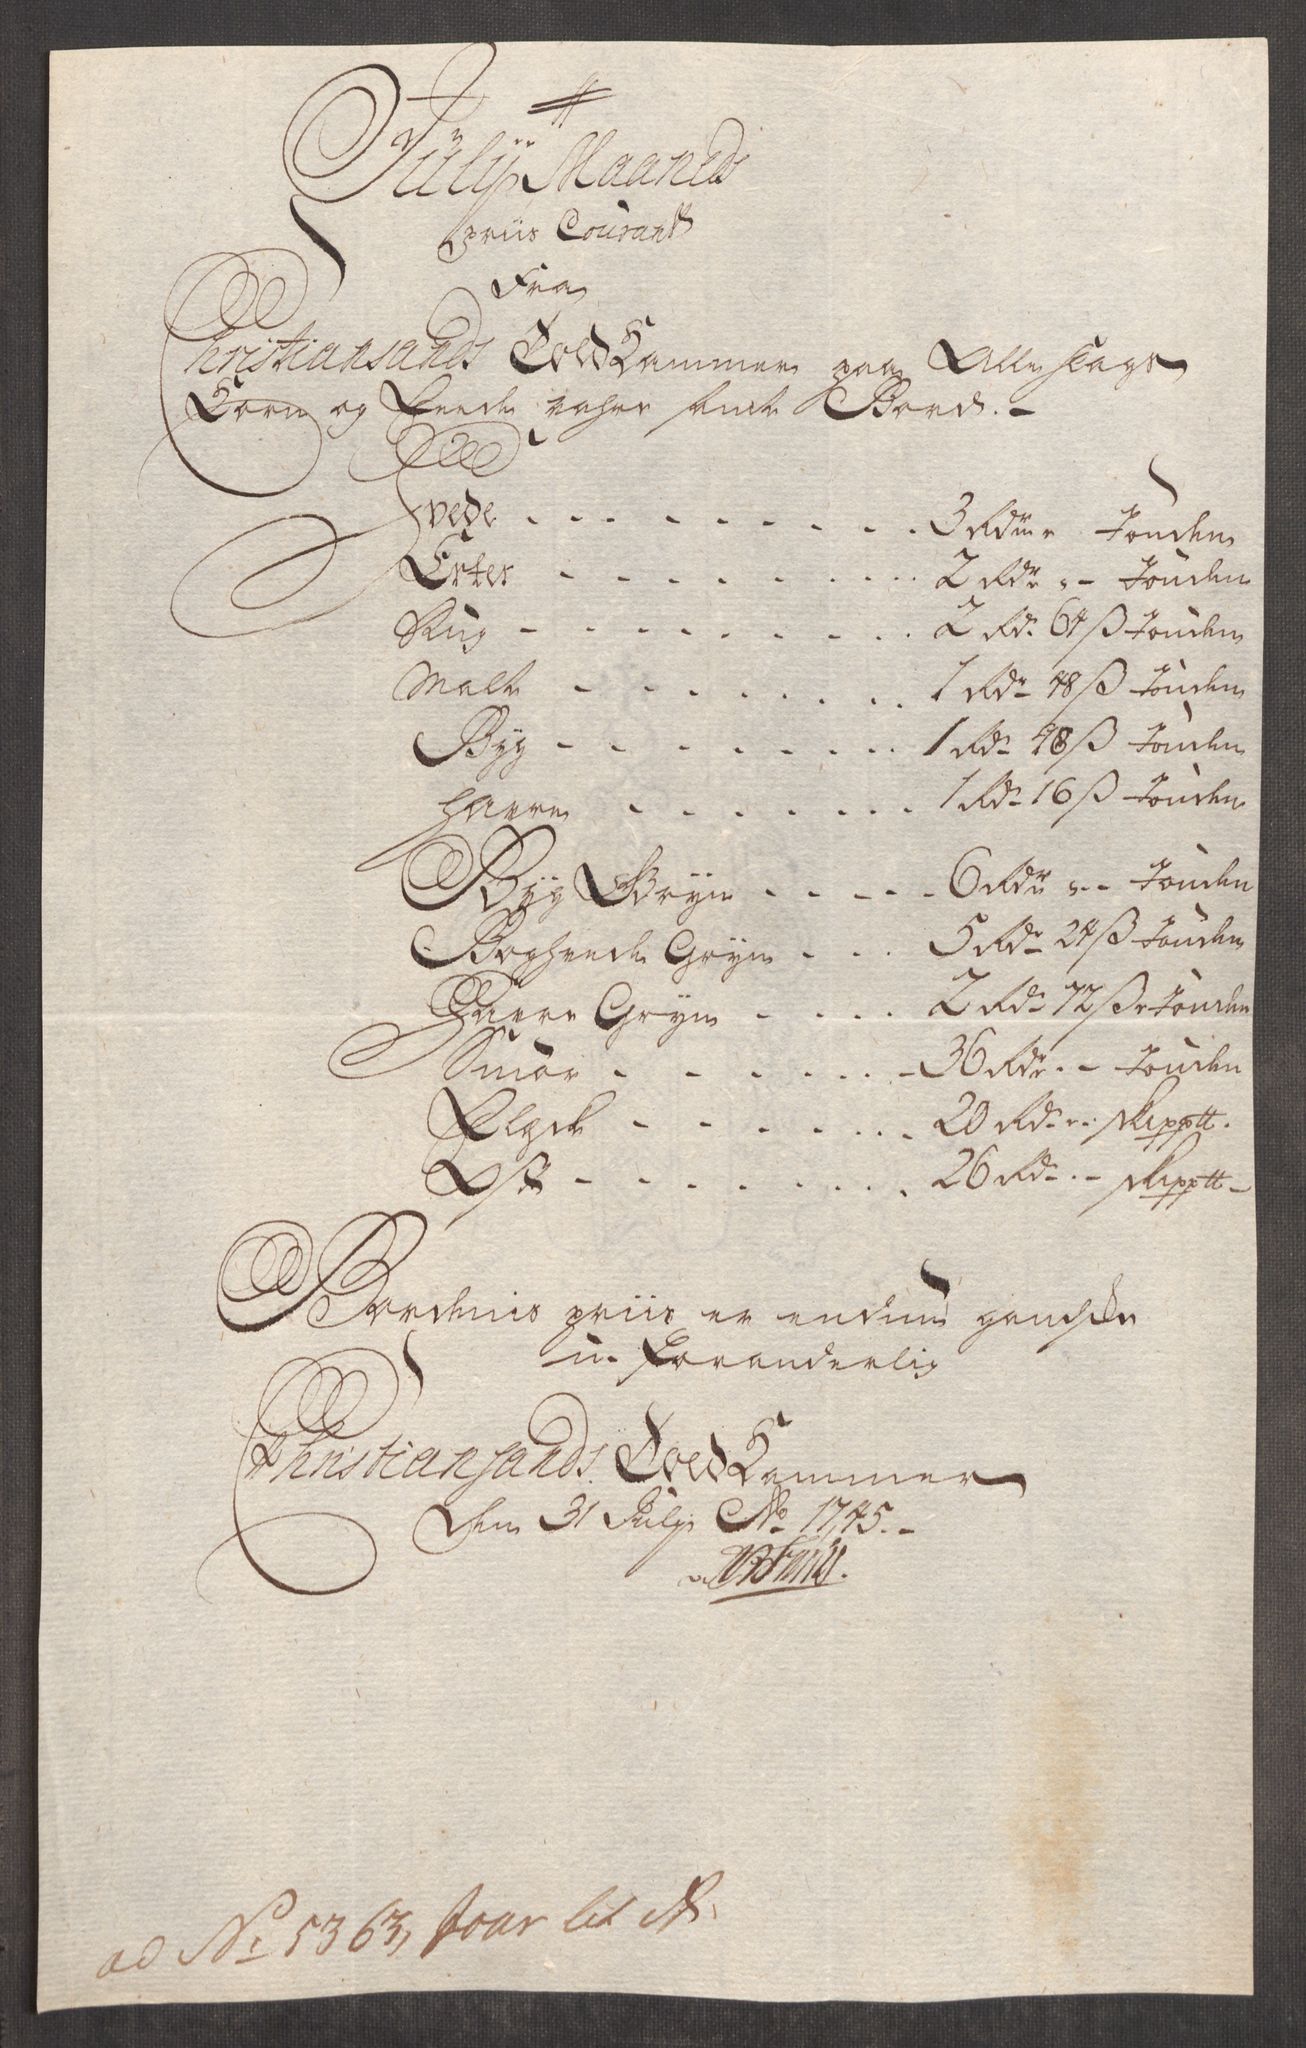 Julij Maaneds
priis Courant
Fra
Christiansands Told Kammer paa Alle slags
Korn og Feede vahre samt Bord. -
Hvede - - - - 3 Rdr - Tønden
Erter - - - - 2 Rdr - Tønden
Rug - - - - 2 Rdr 64 ß Tønden
Malt - - - - 1 Rdr 48 ß Tønden
Byg - - - - 1 Rdr 48 ß Tønden
Havre - - - - 1 Rdr 16 ß Tønden
Byg Gryn - - - - 6 Rdr - Tønden
Boghvede Gryn - - - 5 Rdr 24 ß Tønden
Havre Gryn - - - - 2 Rdr 72 ß Tønden
Smør - - - - 36 Rdr - Tønden
Flesk - - - - 20 Rdr - skipp℔.
Ost - - - - 26 Rdr - skipp℔ -
Bordenis priis er endnu gandske
u-foranderlig
Christiansands Told Kammer
Den 31 Julij Ao 1745. -
ad No 5363, Jour lit A.